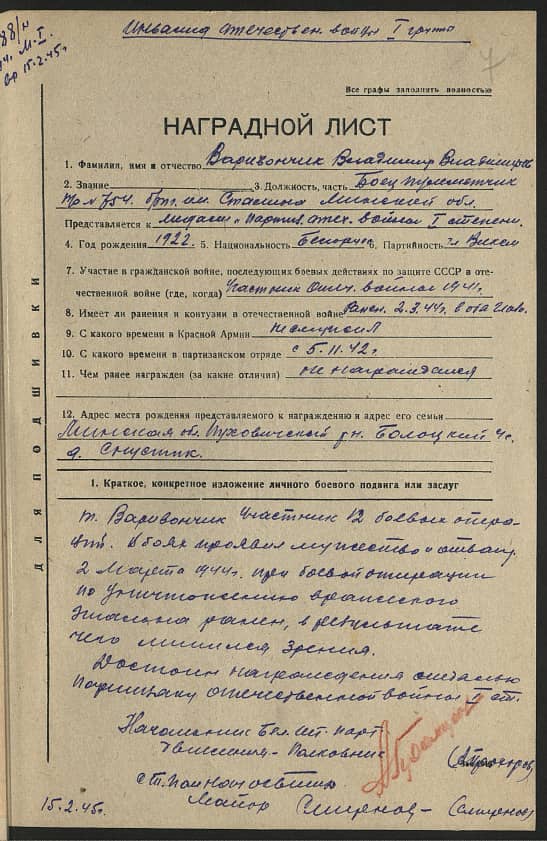 88/н
М.I.
15.2.45г.
Инвалид отечествен. войны I группы
Все графы заполнить полностью
НАГРАДНОЙ ЛИСТ
1. Фамилия, имя и отчество Варивончик Владимир
2. Звание 3. Должность, часть Боец пулеметчик
754. бриг. им. Сталина Минской обл.
Представляется к медали „Партиз. отеч. войны I степени.
4. Год рождения 1922. 5. Национальность Белорус 6. Партийность чл ВЛКСМ
7. Участие в гражданской войне, последующих боевых действиях по защите СССР в оте-
чественной войне (где, когда) Участник отеч. войны 1941г.
8. Имеет ли ранения и контузии в отечественной войне Ранен. 2.3.44г. в оба
9. С какого времени в Красной Армии не служил
10. С какого времени в партизанском отряде с 5.11.42г.
11. Чем ранее награжден (за какие отличия) не награждался
12. Адрес места рождения представляемого к награждению и адрес его семьи
Минская об. Пуховичский рн. Болоцкий с/с
д.
ДЛЯ ПОДШИВКИ
1. Краткое, конкретное изложение личного боевого подвига или заслуг
т. Варивончик участник 12 боевых опера-
ций. В боях проявил мужество и отвагу
2 марта 1944г. при боевой операции
по уничтожению вражеского
эшелона ранен, в результате
чего лишился зрения.
Достоин награждения медалью
Партизану отечественной войны I ст.
Начальник Бел. шт. парт.
движения - Полковник
ст. пом нач
Майор Смирнов - (Смирнов)
15.2.45г.